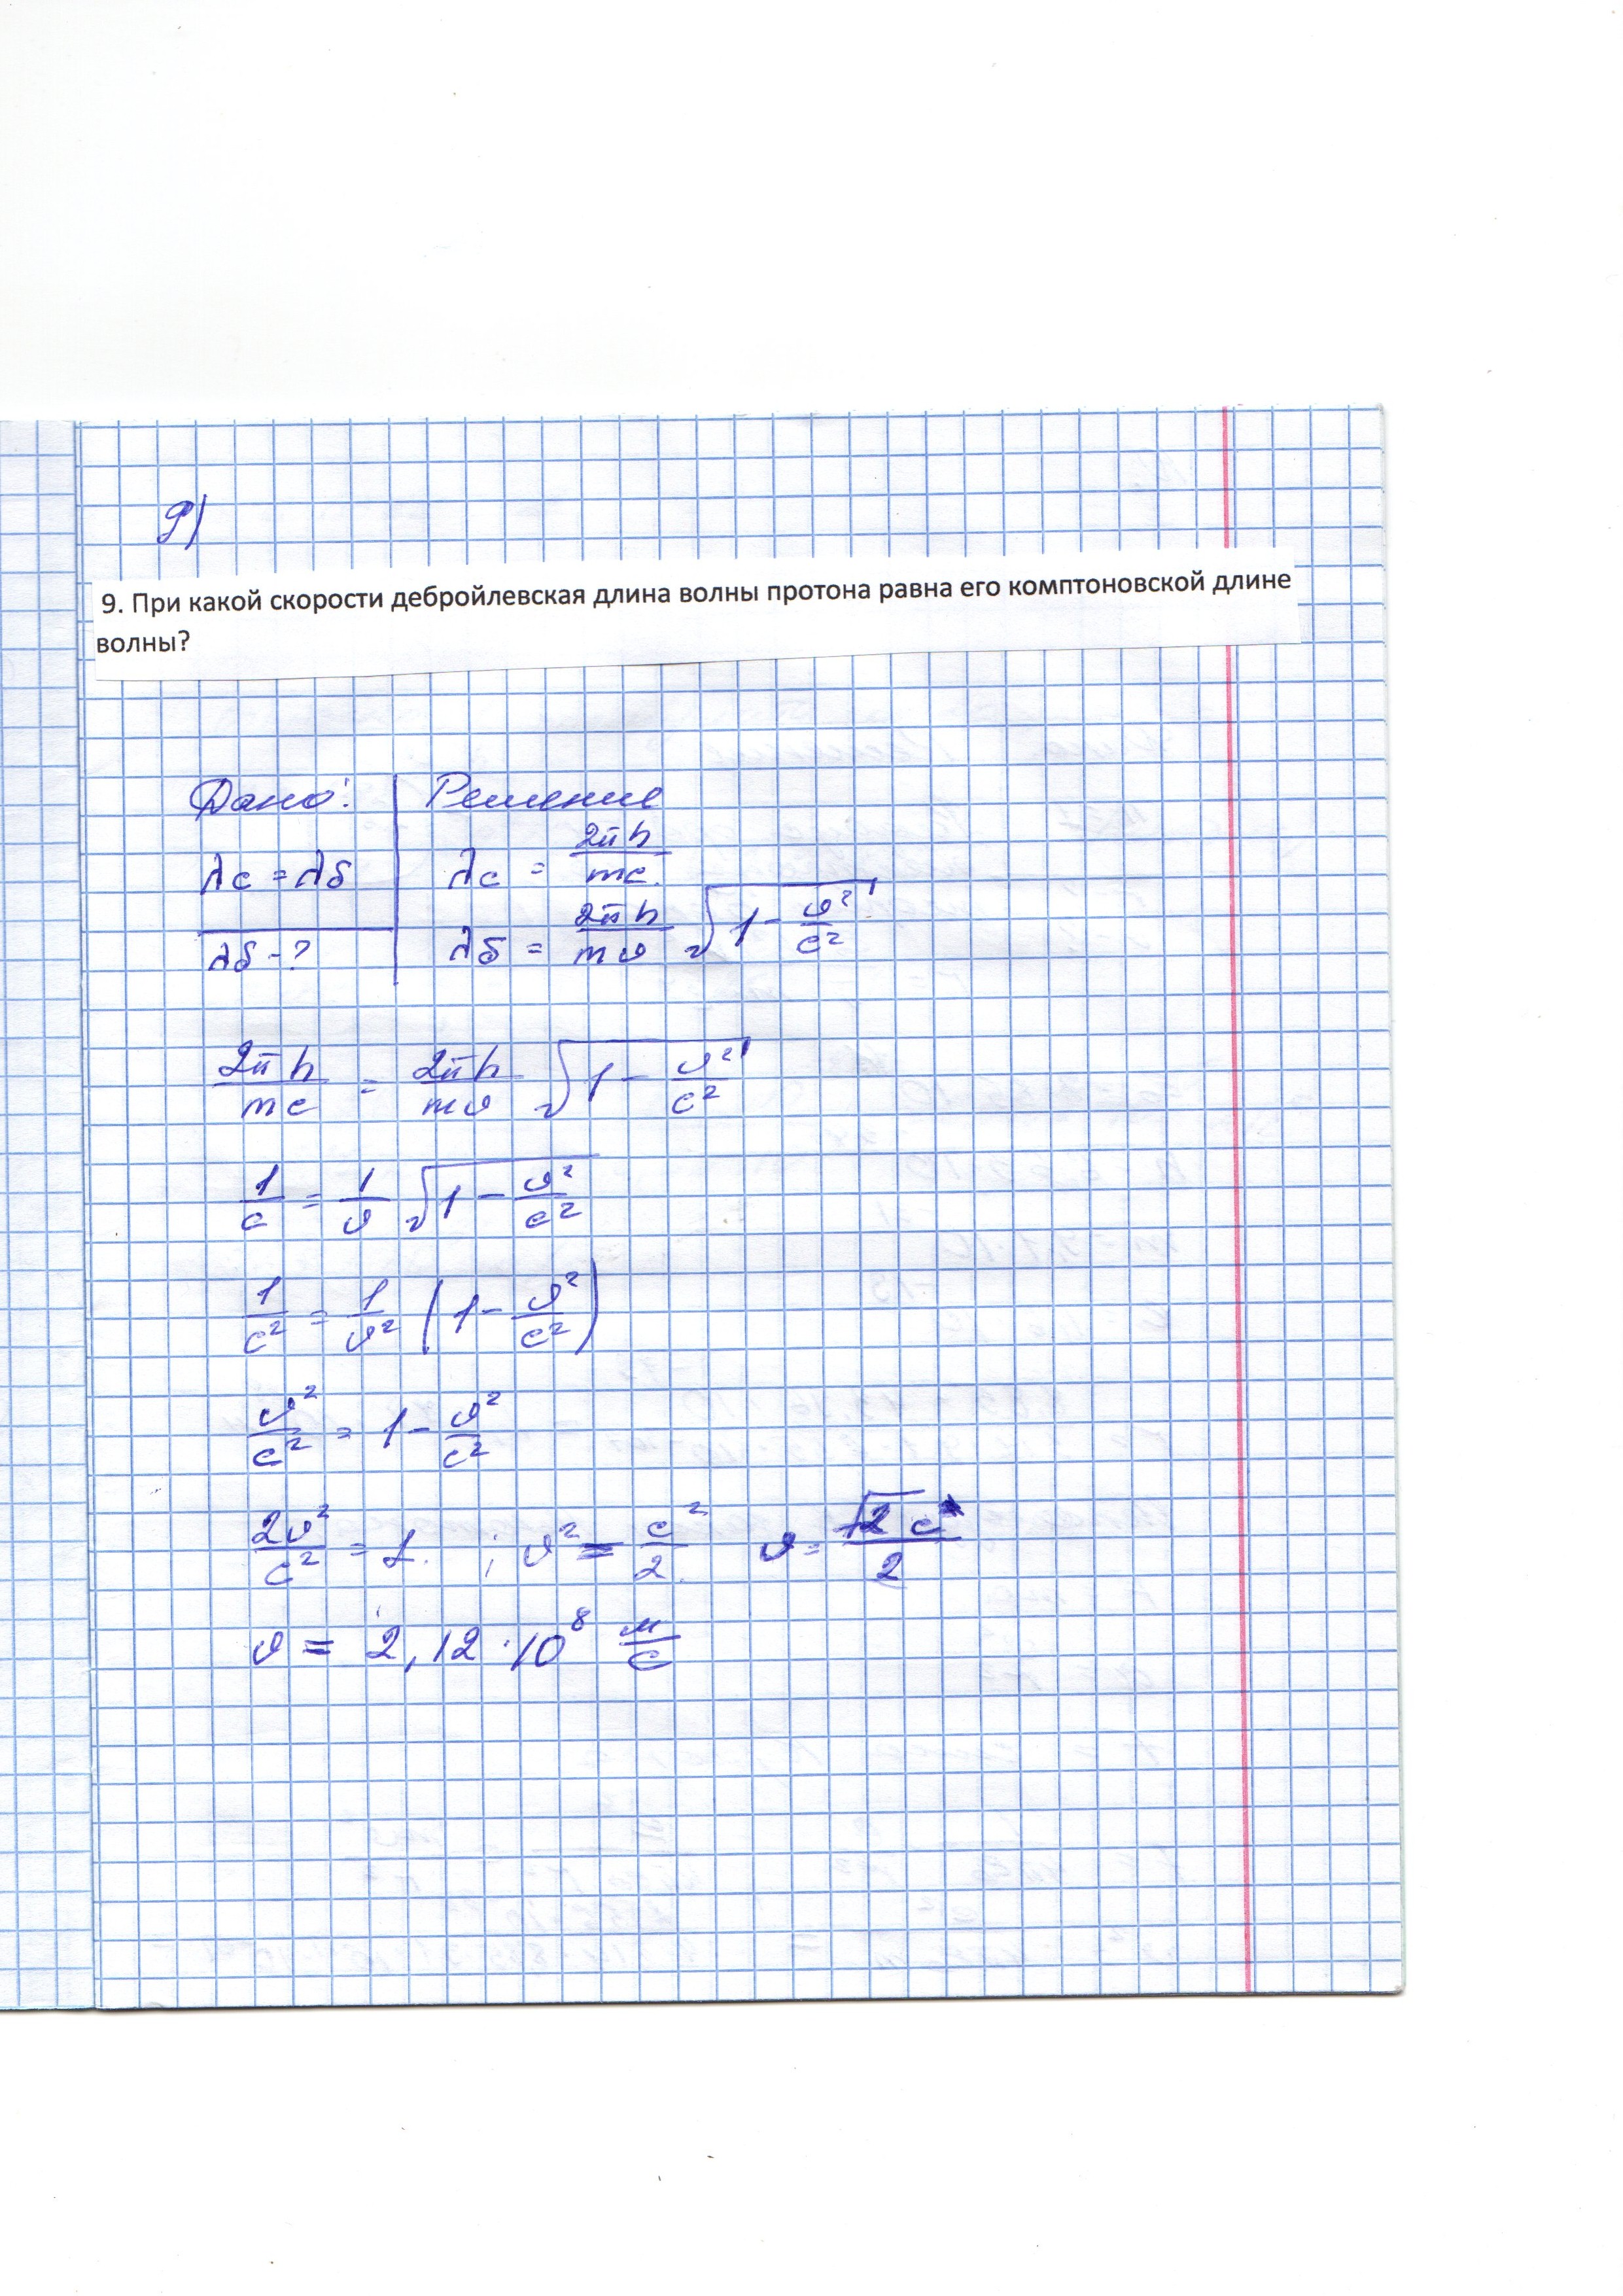 9)
9. При какой скорости дебройлевская длина волны протона равна его комптоновской длине
волны?
Дано: | Решение
λc = λб | λc = 2πh/mc
λб - ? | λб = 2πh/mυ √(1 - υ²/c²)
2πh/mc = 2πh/mυ √(1 - υ²/c²)
1/c = 1/υ √(1 - υ²/c²)
1/c² = 1/υ² (1 - υ²/c²)
υ²/c² = 1 - υ²/c²
2υ²/c² = 1. ; υ² = c²/2. υ = √2 c/2
υ = 2,12 · 10⁸ м/с